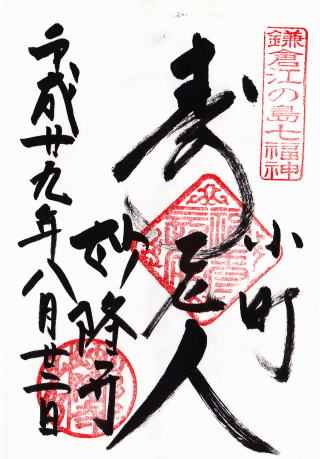 鎌倉江の島七福神
小町
寿老人
妙隆寺
平成廿九年八月廿二日